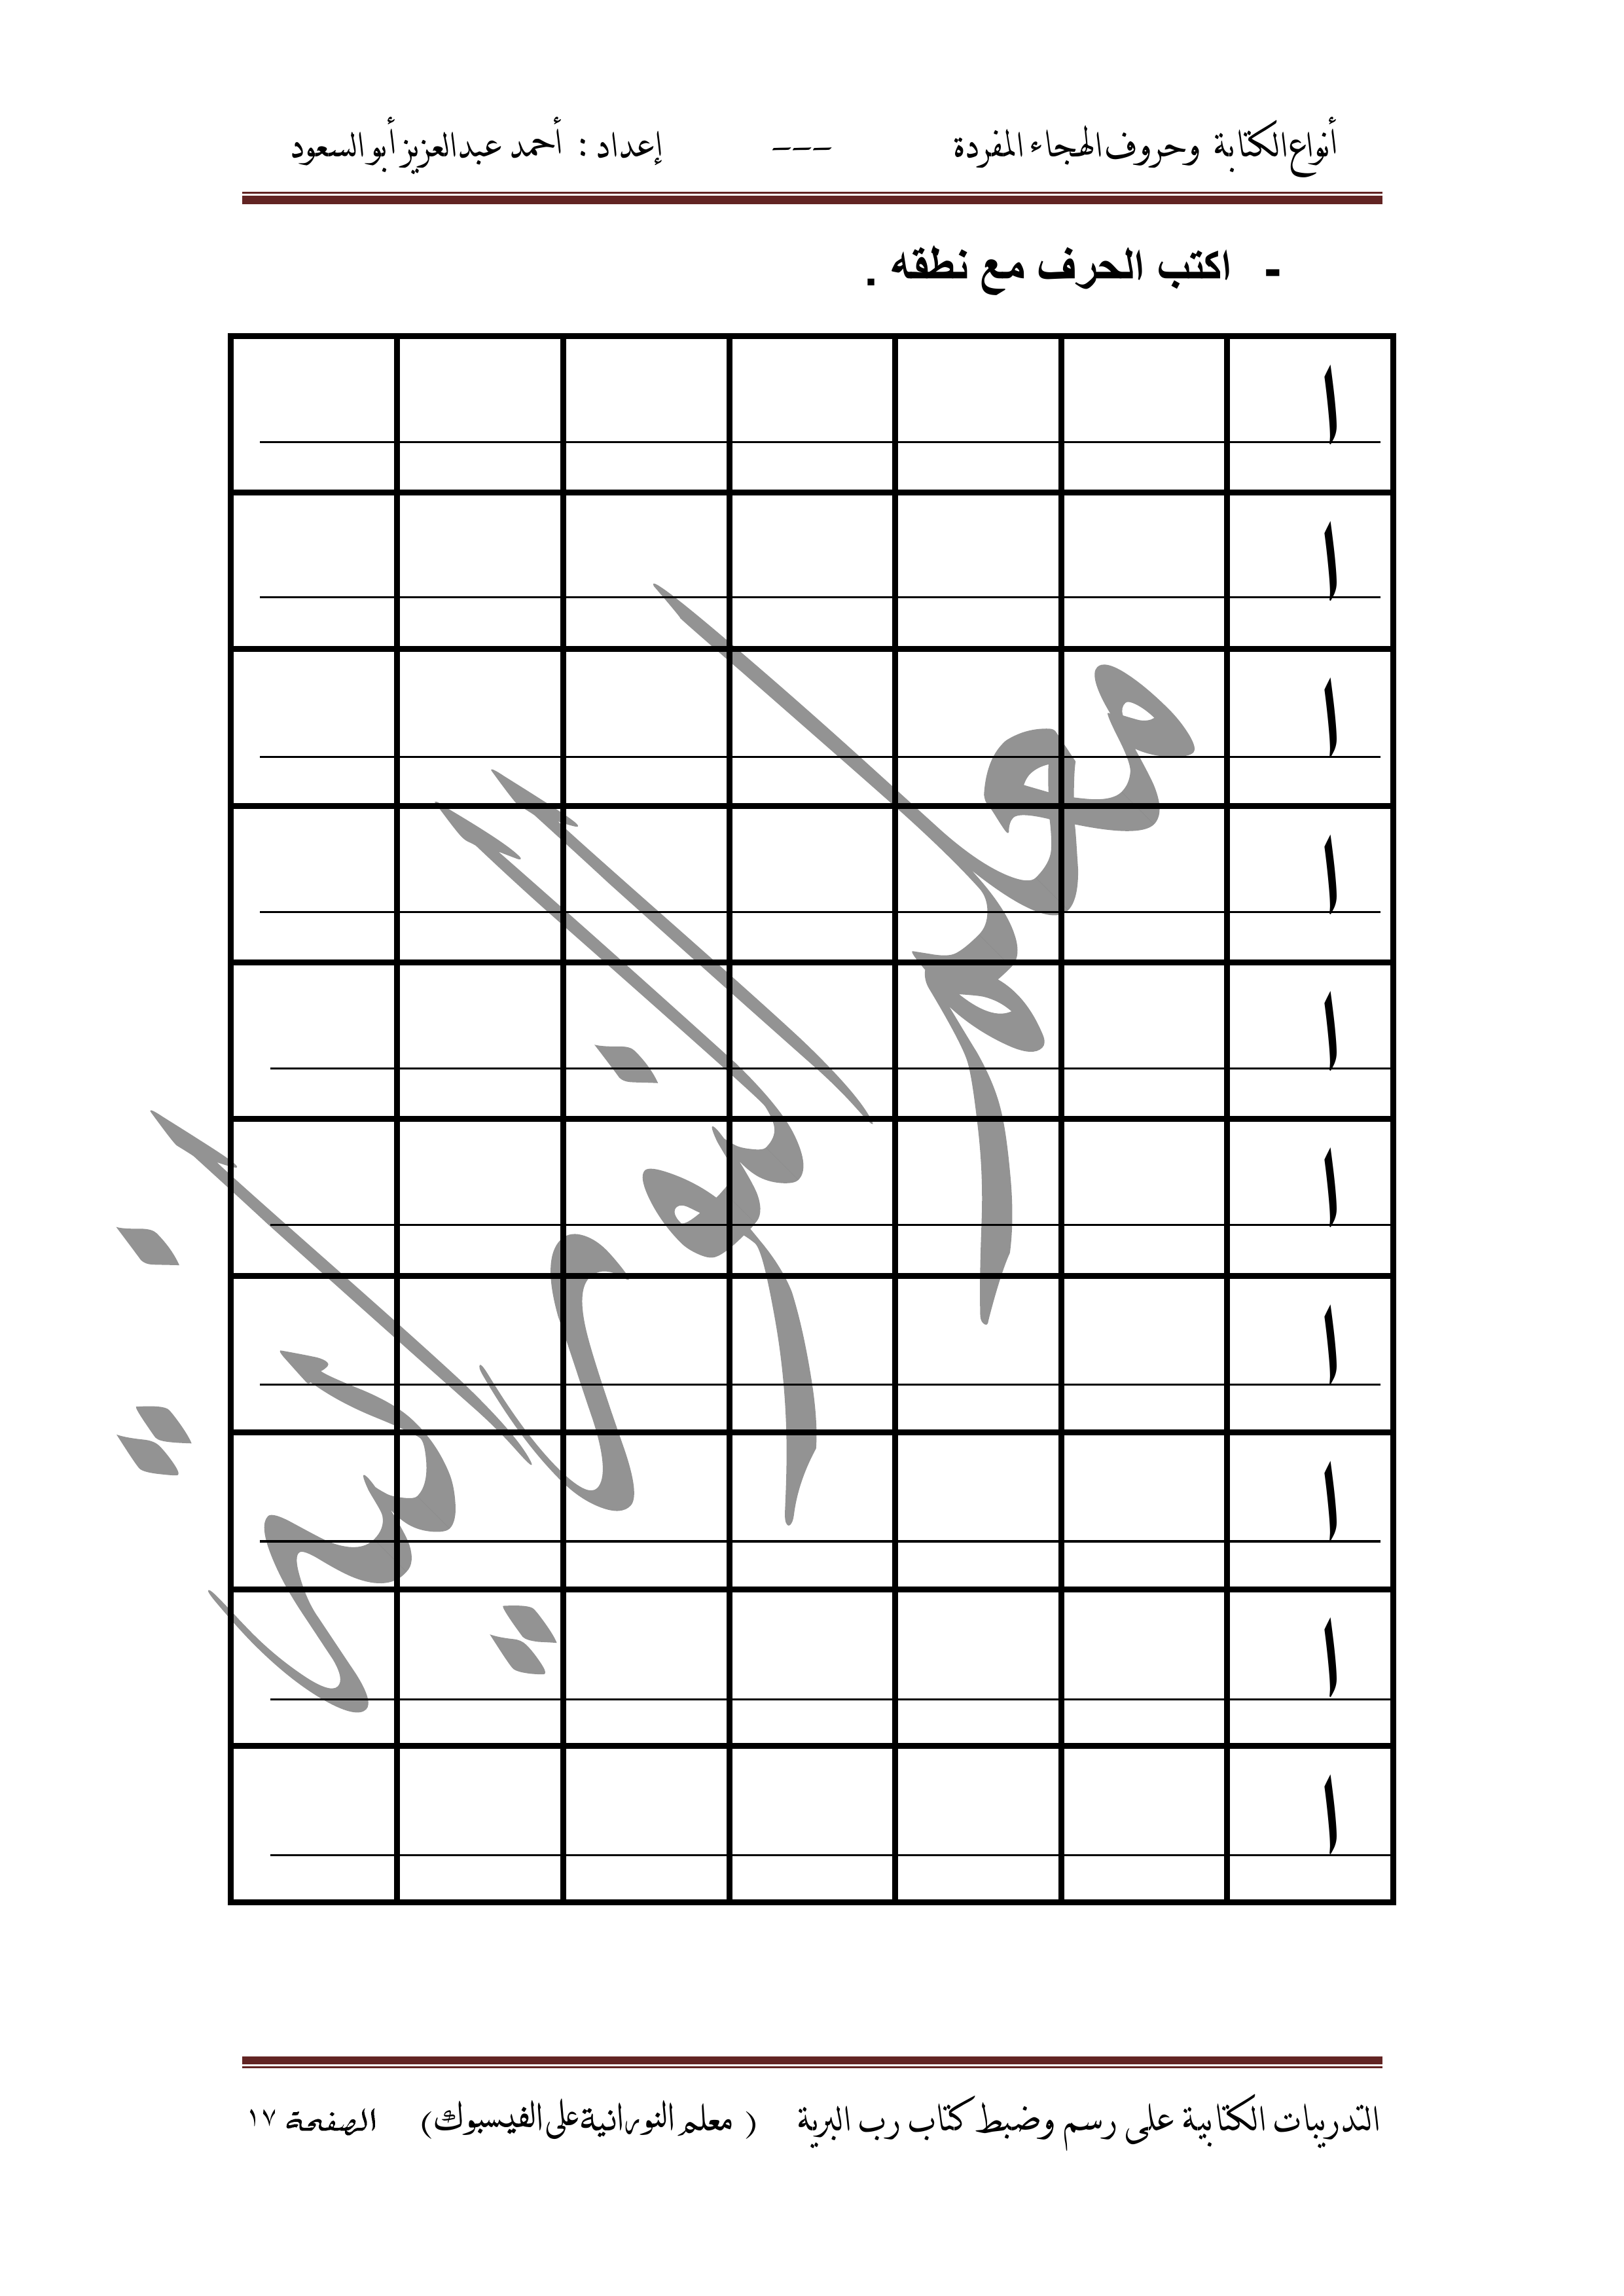 أنواع الكتابة وحروف الهجاء المفردة --- إعداد : أحمد عبدالعزيز أبو السعود
- اكتب الحرف مع نطقه .
ا
ا
ا
ا
ا
ا
ا
ا
ا
ا
معلم النورانية
التدريبات الكتابية على رسم وضبط كتاب رب البرية ( معلم النورانية على الفيسبوك) الصفحة ١٧